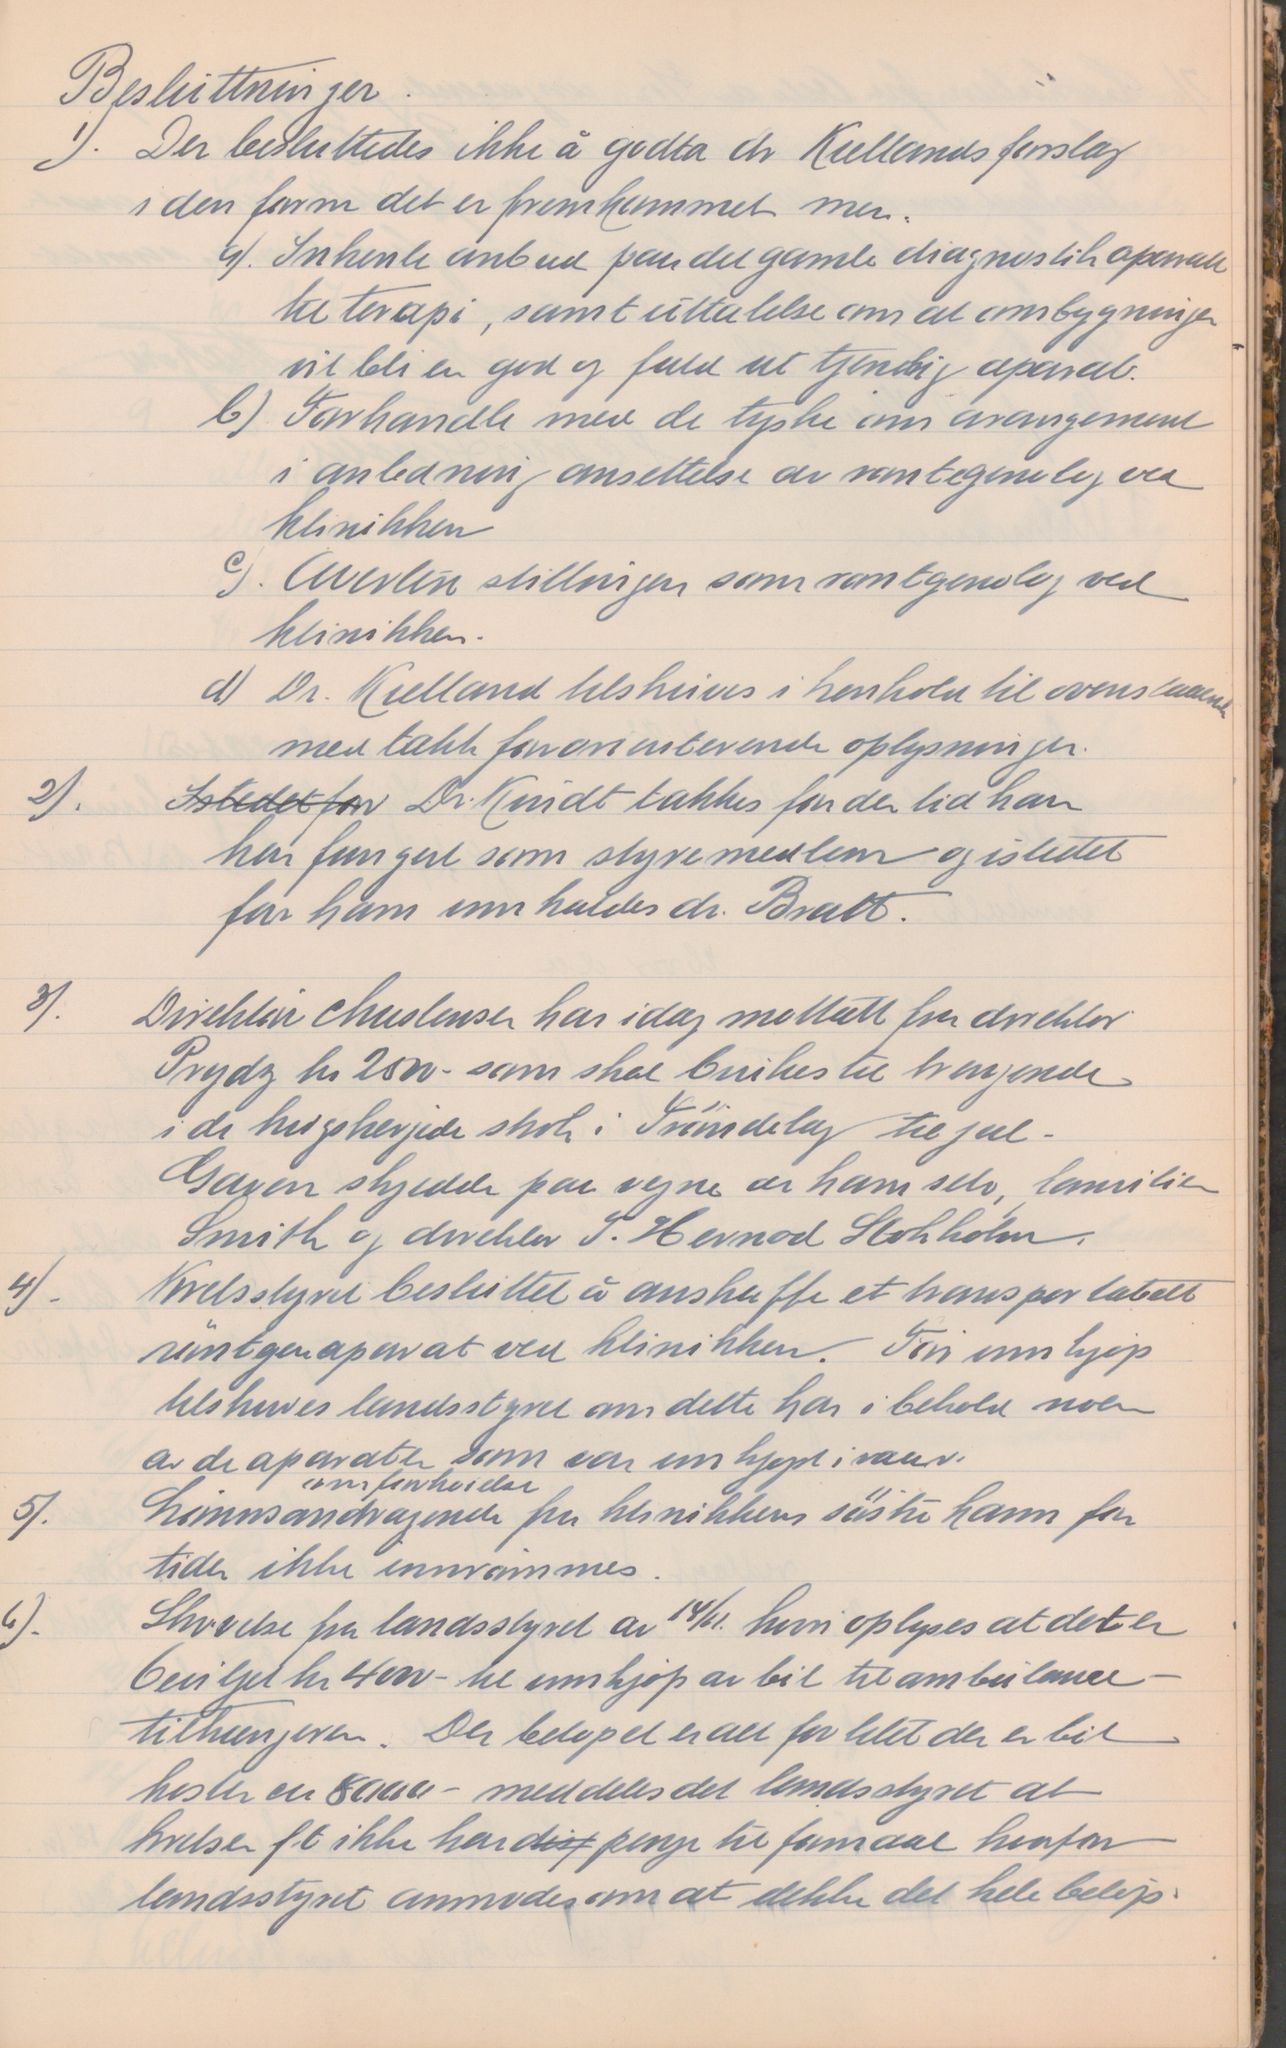 Besluttninger.
1). Der besluttedes ikke å godta dr Kiellands forslag
i den form det er fremkommet men.
a). Inhente anbud paa det gamle diagnostik aparatet
til terapi, samt uttalelse om at ombygningen
vil bli en god og fuld ut tjenelig aparat.
b) Forhandle med de tyske om arangement
i anledning ansettelse av røntgenolog ved
klinikken
c). Averter stillingen som røntgenolog ved
klinikken.
d) Dr. Kielland tilskrives i henhold til ovenstaaende
med takk for orienterende oplysninger.
2). Istedet for Dr. Kindt takkes for den tid han
har fungert som styremedlem og istedet
for ham innkaldes dr. Bratt.
3). Direktör Mustensen har idag mottatt fra direktör
Prydz kr 2500- som skal brukes til trengende
i de krigsherjede strök i Tröndelag til jul-
Gaven skjedde paa vegne av ham selv, familien
Smith og direktör T. Hernod Stokholm.
4)- Kretsstyret besluttet å anskaffe et transportabelt
röntgenaparat ved klinikken. För innkjöp
tilskrives landsstyret om dette har i behold noen
av de aparater som var innkjöpt i vaar.
5). Lönnsandragende om forhöielse fra klinikkens söstre kann for
tiden ikke innrömmes.
6). Skrivelse fra landsstyret av 14/11. hvori oplyses at det er
bevilget kr 4000- til innkjöp av bil til ambulance-
tilhengeren. Da belöpet er alt for litet da en bil
koster ca 8000- meddeles det landsstyret at
kretsen f.t ikke har disp penge til formaal hvorfor
landsstyret anmodes om at dekke det hele belöp.